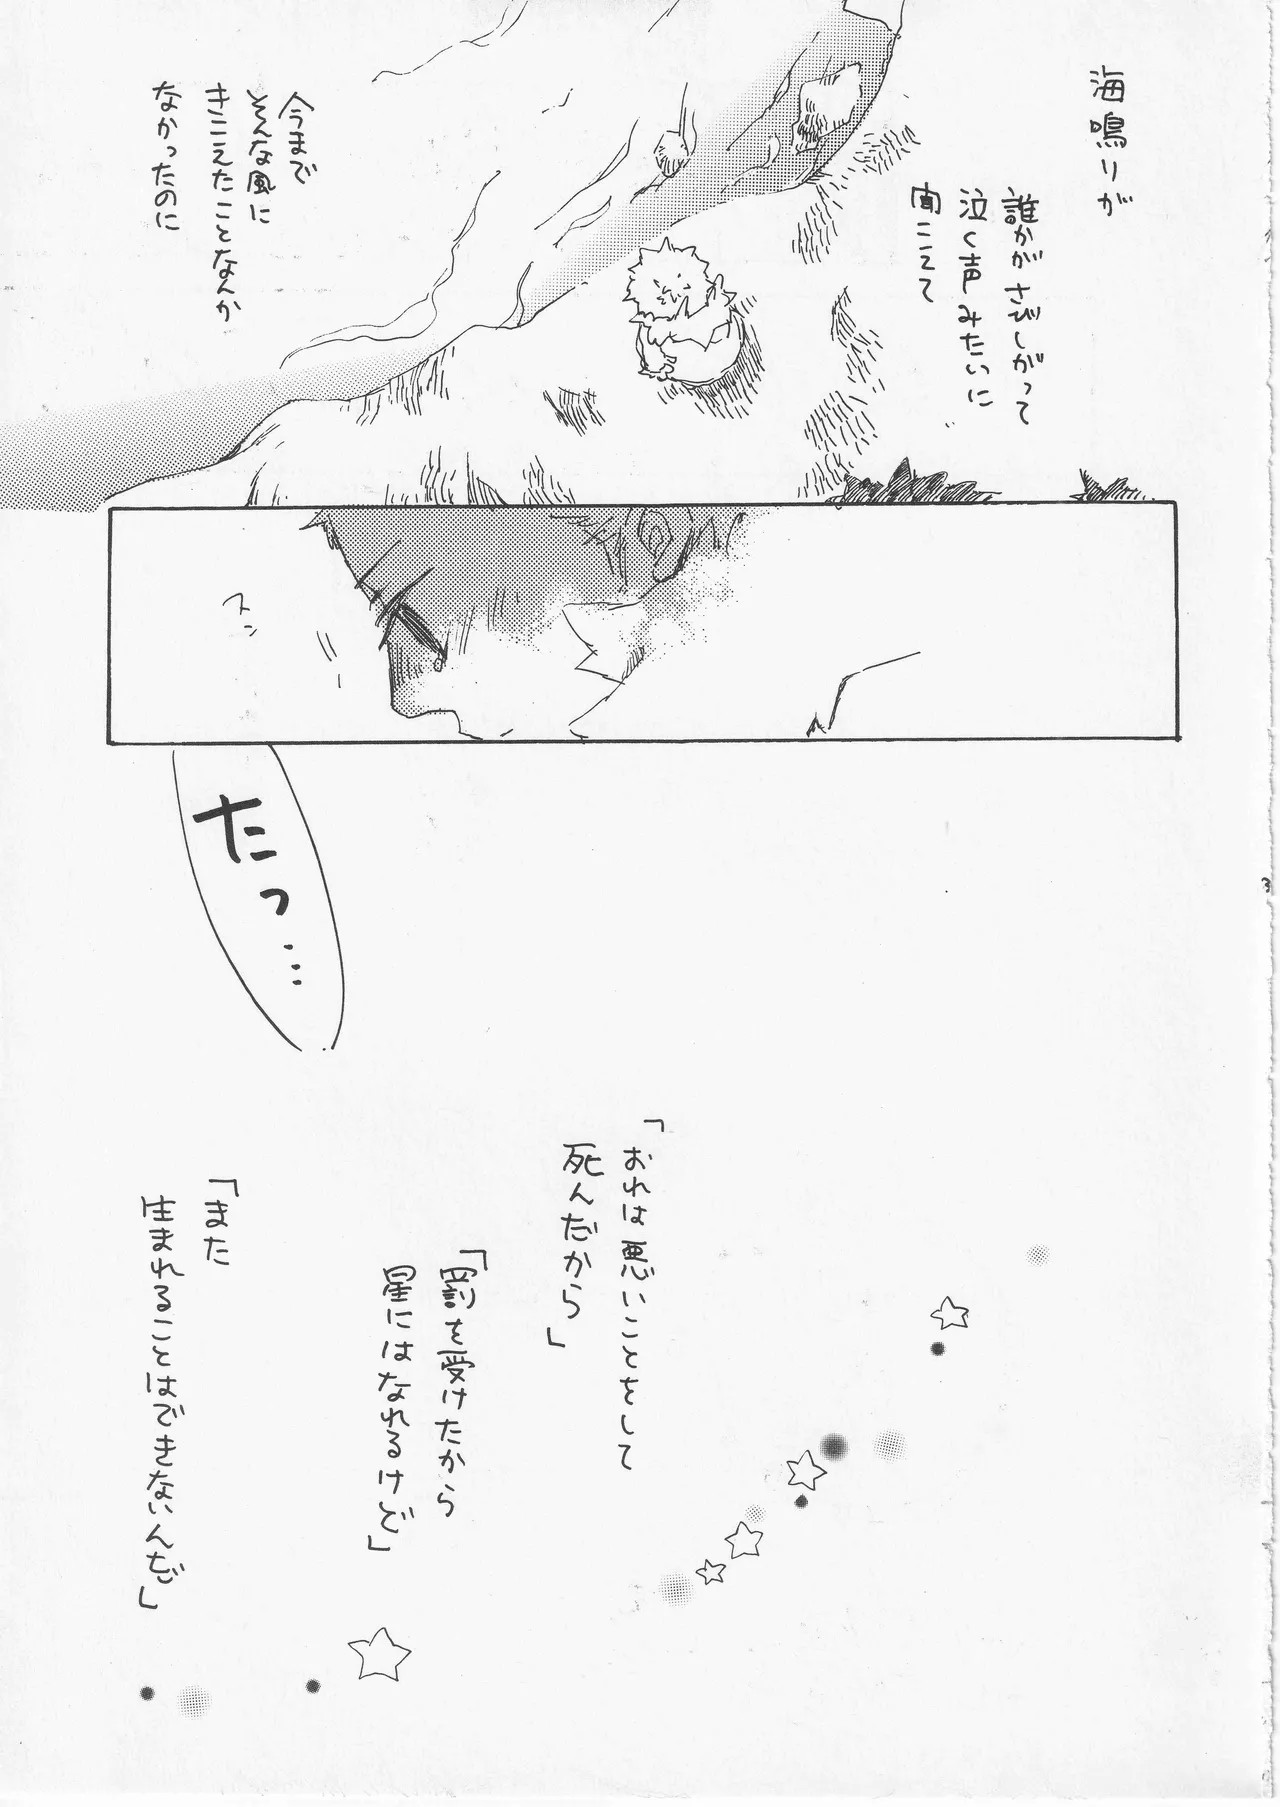 海鳴りが
誰かがさびしがって
泣く声みたいに
聞こえて
今まで
そんな風に
きこえたことなんか
なかったのに
スン
たっ…
「おれは悪いことをして
死んだから」
「罰を受けたから
星にはなれるけど」
「また
生まれることはできないんだ」
3